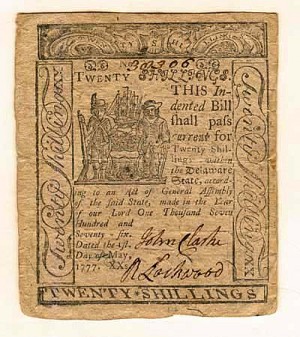 No. 30306
TWENTY SHILLINGS.
THIS In-
dented Bill
shall pass
current for
Twenty Shil-
lings within
the Delaware
State, accord-
ing to an Act of General Assembly
of the said State, made in the Year
of our Lord One Thousand Seven
Hundred and
Seventy-six.
Dated the 1st.
Day of May,
1777. XX
John Clarke
R Lockwood
Twenty Shillings XX
Twenty Shillings XX
TWENTY * SHILLINGS